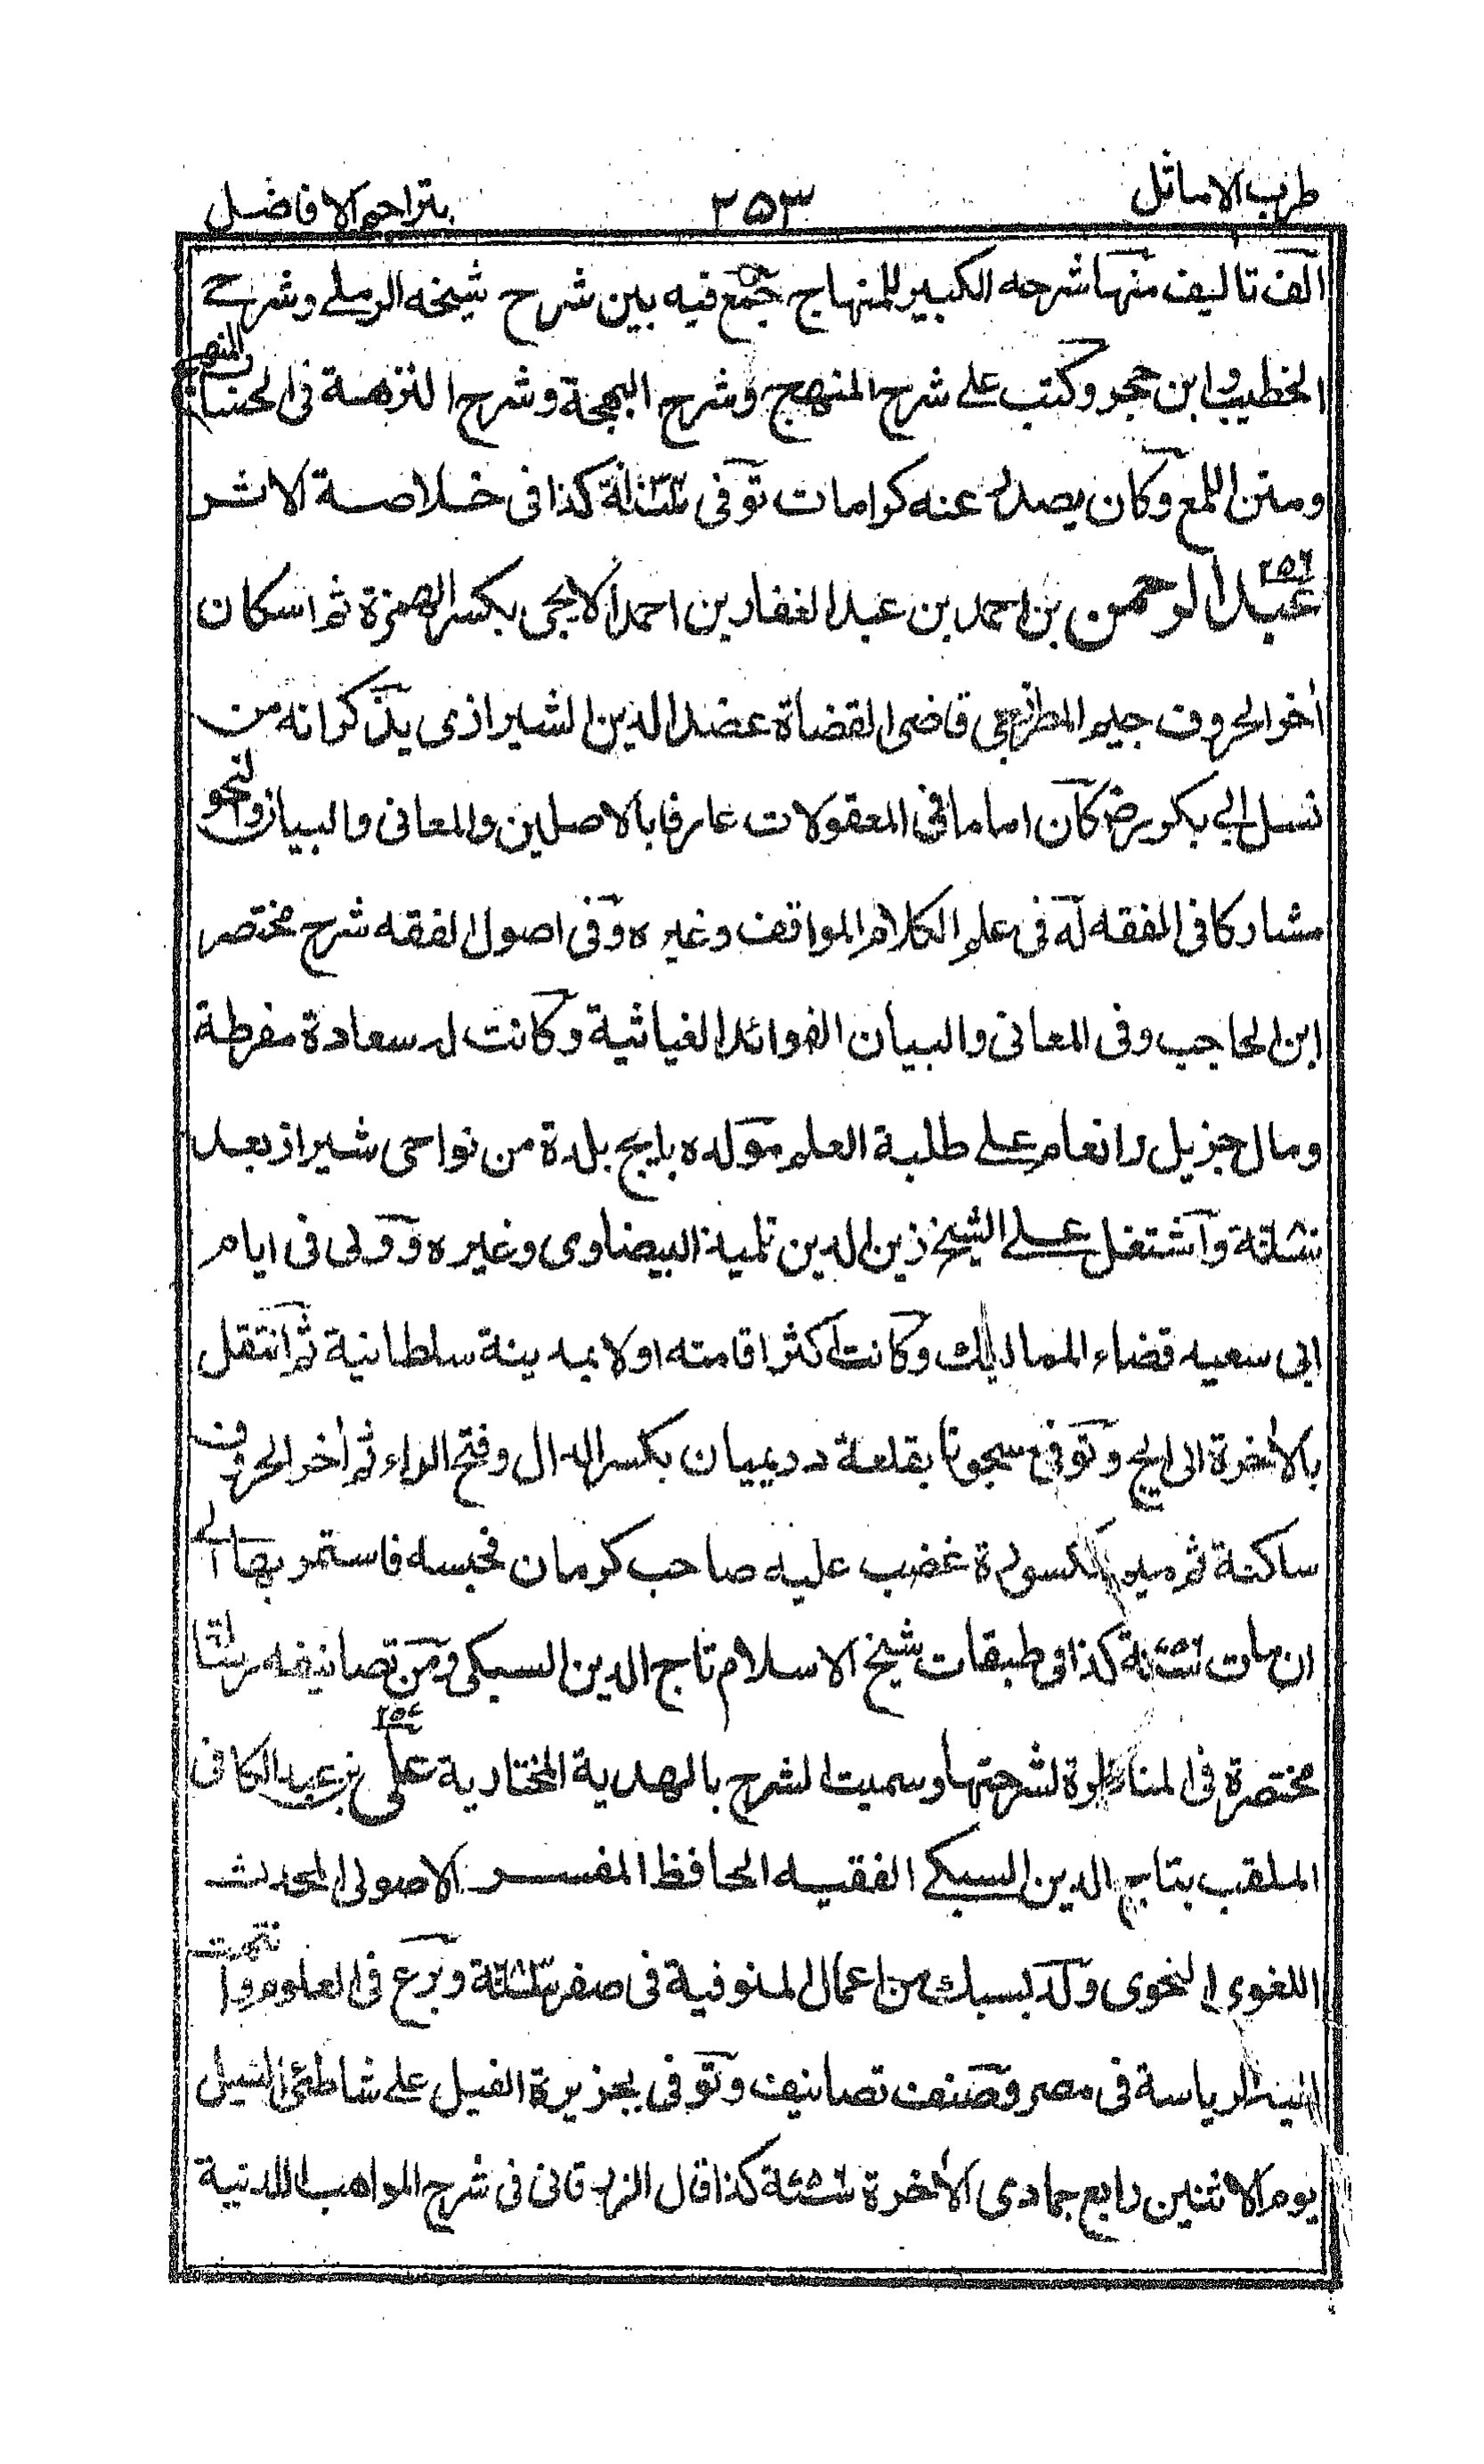 طرب الاماثل
٢٥٣
بتراجم الافاضل
الف تاليف منها شرحه الكبير للمنهاج جمع فيه بين شرح شيخه الرملي وشرح
الخطيب وابن حجر وكتب على شرح المنهج وشرح البهجة وشرح النزهة فى الحساب
ومتن اللمع وكان يصدر عنه كرامات توفى كذا فى خلاصة الاثر
٢٥٦
عبد الرحمن بن احمد بن عبد الغفار بن احمد الايجى بكسر الهمزة ثم اسكان
اٰخر الحروف جيم المطرزى قاضى القضاة عضد الدين الشيرازى يذكر انه من
نسل ابى بكر رض كان اماما فى المعقولات عارفا بالاصلين والمعانى والبيان والنحو
مشاركا فى الفقه له فى علم الكلام المواقف وغيره وفى اصول الفقه شرح مختصر
ابن الحاجب وفى المعانى والبيان الفوائد الغياثية وكانت له سعادة مفرطة
ومال جزيل وانعام على طلبة العلم مولده بايج بلدة من نواحى شيراز بعد
واشتغل على الشيخ زين الدين تلميذ البيضاوى وغيره وولى فى ايام
ابى سعيد قضاء الممالك وكانت اكثر اقامته اولا بمدينة سلطانية ثم انتقل
بالاٰخرة الى ايج وتوفى مسجونا بقلعة دريميان بكسر الدال وفتح الراء ثم اٰخر الحروف
ساكنة ثم ميم مكسورة غضب عليه صاحب كرمان فحبسه فاستمر بها الى
ان مات سنة ٧٥٦ كذا فى طبقات شيخ الاسلام تاج الدين السبكى ومن تصانيفه رسالة
مختصرة فى المناظرة شرحتها وسميت الشرح بالهدية المختارية علي بن عبد الكافى
الملقب بتاج الدين السبكي الفقيه الحافظ المفسر الاصولى المحدث
اللغوى النحوى ولد بسبك من اعمال المنوفية فى صفر سنة ٦٨٣ وبرع فى العلوم وانتهت
اليه الرياسة فى مصر وصنف تصانيف وتوفى بجزيرة الفيل على شاطئ النيل
يوم الاثنين رابع جمادى الاٰخرة سنة ٧٥٦ كذا قال الزرقانى فى شرح المواهب اللدنية